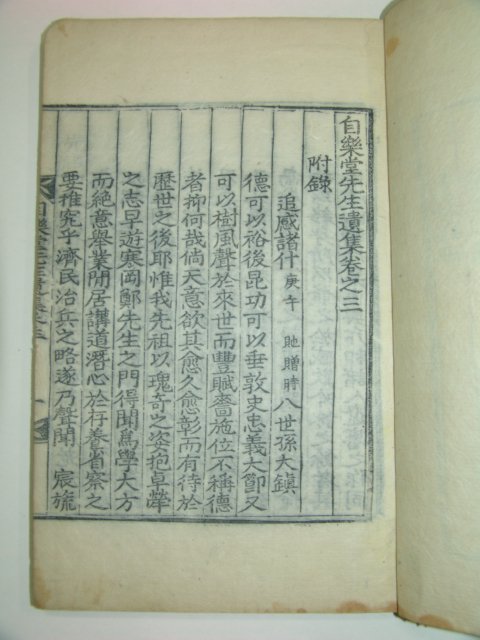 自樂堂先生遺集卷之三
附錄
追感諸什 庚午 貤贈時 八世孫大鎭
德可以裕後昆功可以垂敦史忠義大節又
可以樹風聲於來世而豐賦嗇施位不稱德
者抑何哉倘天意欲其愈久愈彰而有待於
歷世之後耶惟我先祖以瑰奇之姿抱卓犖
之志早遊寒岡鄭先生之門得聞爲學大方
而絶意擧業閒居講道潛心於存養省察之
要推究乎濟民治兵之略遂乃聲聞 宸旒
自樂堂先生遺集卷之三